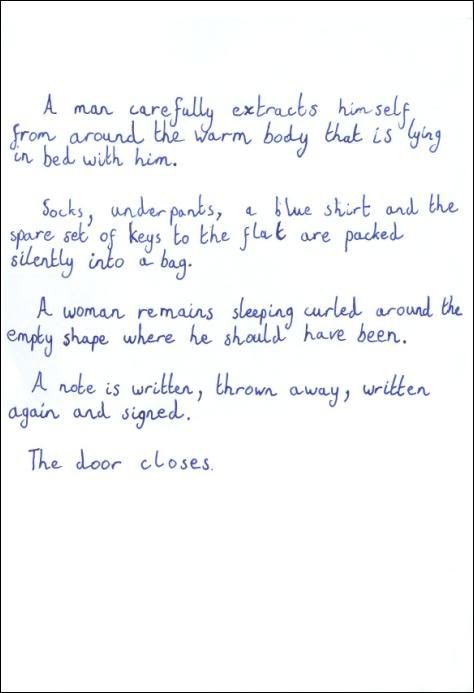 A man carefully extracts himself
from around the warm body that is lying
in bed with him.
Socks, underpants, a blue shirt and the
spare set of keys to the flat are packed
silently into a bag.
A woman remains sleeping curled around the
empty shape where he should have been.
A note is written, thrown away, written
again and signed.
The door closes.